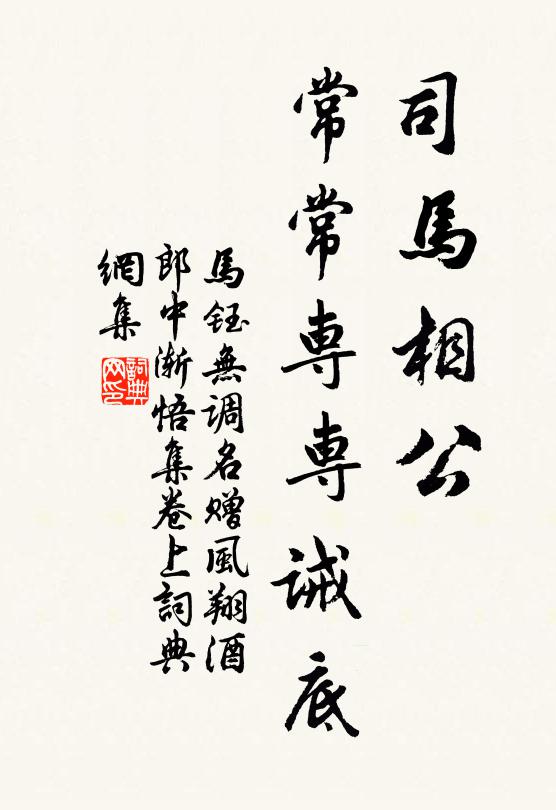 司馬相公
常常専専誡底
馬鈺無調名赠風翔酒
郎中漸悟集卷上詞典
網集
詞典网印